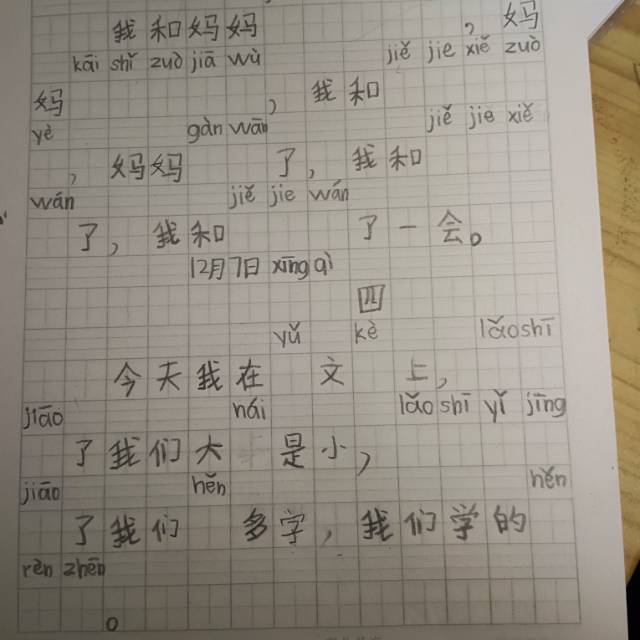 我和妈妈 , 妈
kāi shǐ zuò jiā wù jiě jie xiě zuò
妈 , 我和
yè gàn wān jiě jie xiě
, 妈妈 了, 我和
wán jiě jie wán
了, 我和 了一会。
12月7日 xīng qì
四
yǔ kè lǎo shī
今天我在 文 上,
jiāo hái lǎo shī yǐ jīng
了我们大 是小,
jiāo hěn hěn
了我们 多字, 我们学的
rèn zhēn
。